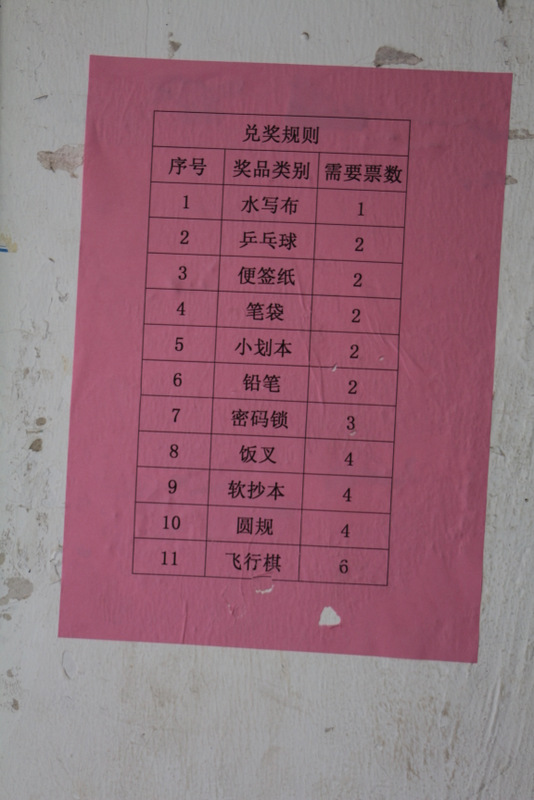 兑奖规则
序号 奖品类别 需要票数
1 水写布 1
2 乒乓球 2
3 便签纸 2
4 笔袋 2
5 小划本 2
6 铅笔 2
7 密码锁 3
8 饭叉 4
9 软抄本 4
10 圆规 4
11 飞行棋 6